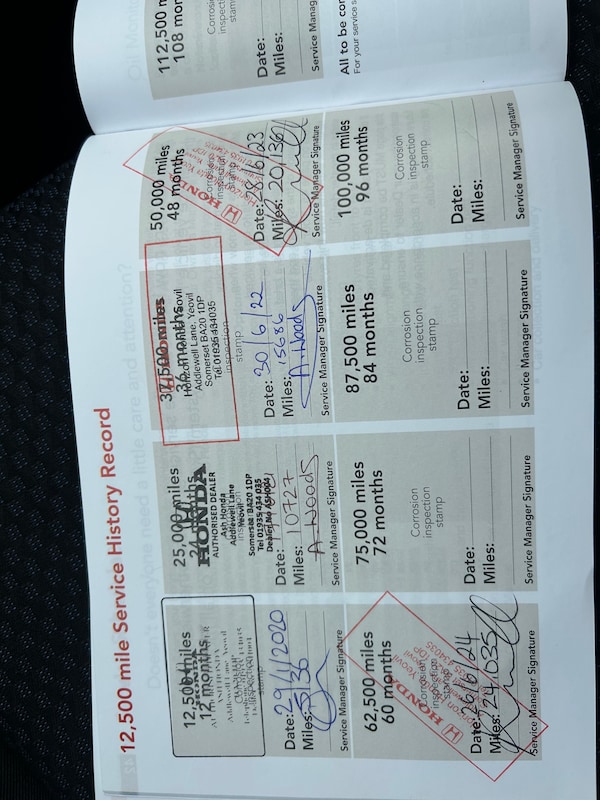 12,500 mile Service History Record
12,500 miles
12 months
stamp
Date: 29/ /2020
Miles: 5136
Service Manager Signature
25,000 miles
24 months
HONDA
AUTHORISED DEALER
Ash Honda
Addlewell Lane
Yeovil
Somerset BA20 1DP
Tel 01935 434 035
Date:
Miles: 10727
A. Woods
Service Manager Signature
37,500 miles
36 months
Addlewell Lane, Yeovil
Somerset BA20 1DP
Tel 01935 434035
inspection
stamp
Date: 30/6/22
Miles: 15686
A. Woods
Service Manager Signature
50,000 miles
48 months
HONDA
Date: /6/23
Miles: 20,136
Service Manager Signature
62,500 miles
60 months
Corrosion
HONDA
Date: 26/6/24
Miles: 24,035
Service Manager Signature
75,000 miles
72 months
Corrosion
inspection
stamp
Date:
Miles:
Service Manager Signature
87,500 miles
84 months
Corrosion
inspection
stamp
Date:
Miles:
Service Manager Signature
100,000 miles
96 months
Corrosion
inspection
stamp
Date:
Miles:
Service Manager Signature
112,500 m
108 mon
Corrosion
inspec
stam
Date:
Miles:
Service Manag
All to be con
For your service s